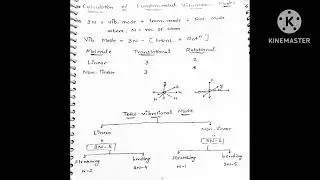 Calculation of Fundamental Vibration Modes
3N = vib. mode + tran. mode + rot. mode
where, N = no. of atom
Vib. Mode = 3N - [trans. + Rotn]
Molecule Translational Rotational
Linear 3 2
Non-linear 3 3
Total Vibrational Mode
Linear Non-linear
3N-5 3N-6
Stretching bending Stretching bending
N-1 2N-4 N-1 2N-5
MADE WITH
KINEMASTER